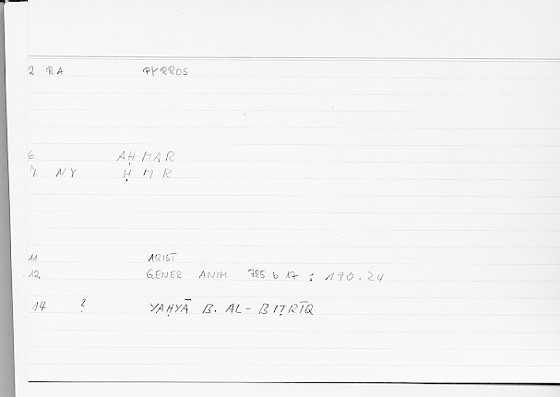 2 RA PYRROS
6 AḤMAR
7 NY ḤMR
11 ARIST
12 GENER ANIM 785 b 17 : 190.24
14 ? YAḤYĀ B. AL-BIṬRĪQ